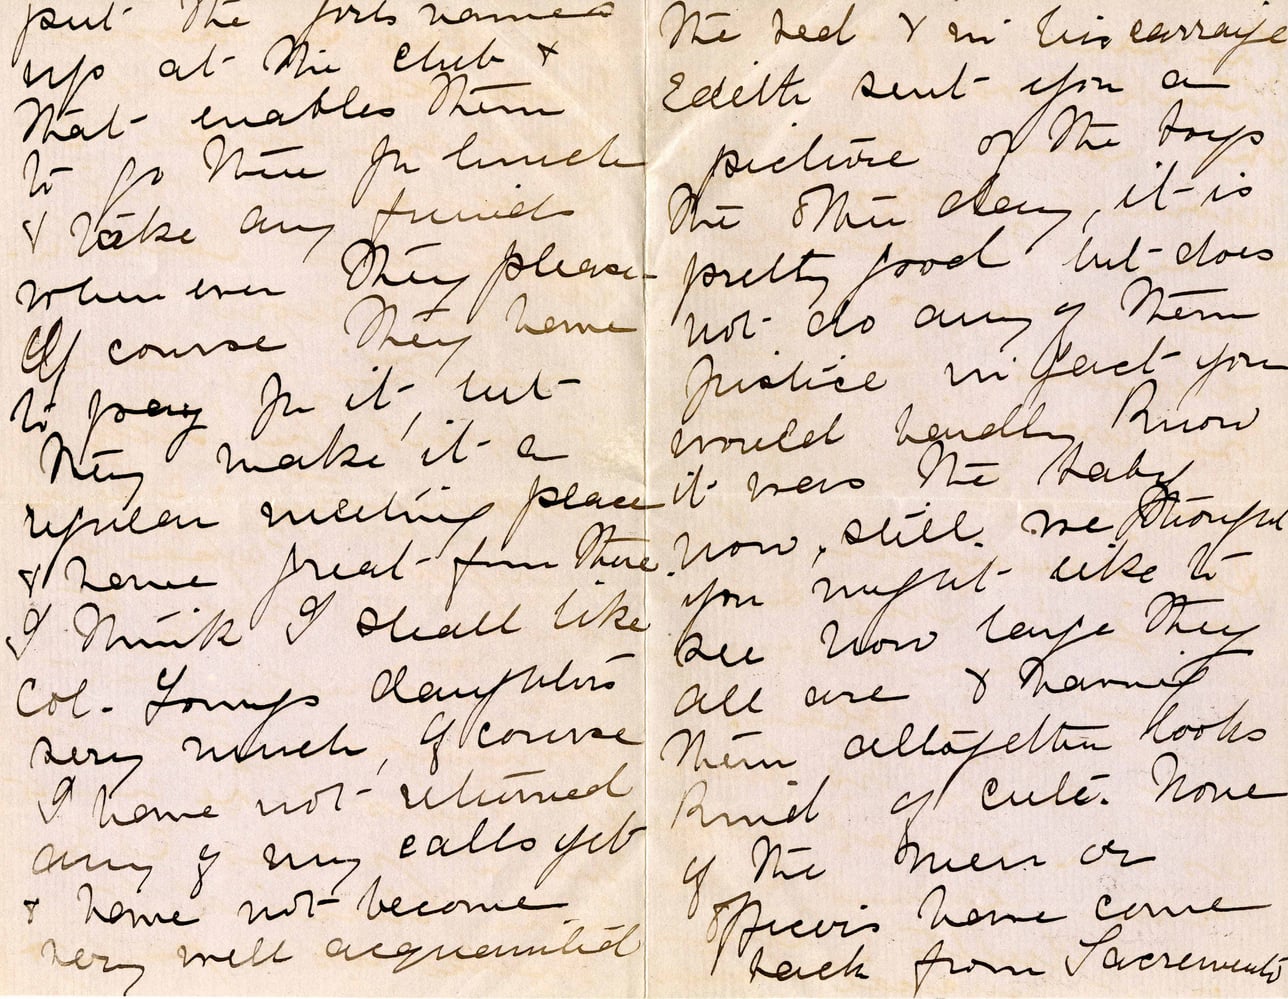 put the
up at the club &
that enables them
to go there for lunch
& take any friends
when ever they please
Of course they have
to pay for it, but
they make it a
regular meeting place
& have great fun there.
I think I shall like
Col. Youngs daughters
very much, of course
I have not returned
any of my calls yet
& have not become
very well acquainted
the bed & in his carraige
Edith sent you a
picture of the boys
the other day, it is
pretty good but does
not do any of them
justice in fact you
would hardly know
it was the baby
now, still we thought
you might like to
see how large they
all are & having
them altogether looks
kind of cute. None
of the men or
officers have come
back from Sacremento